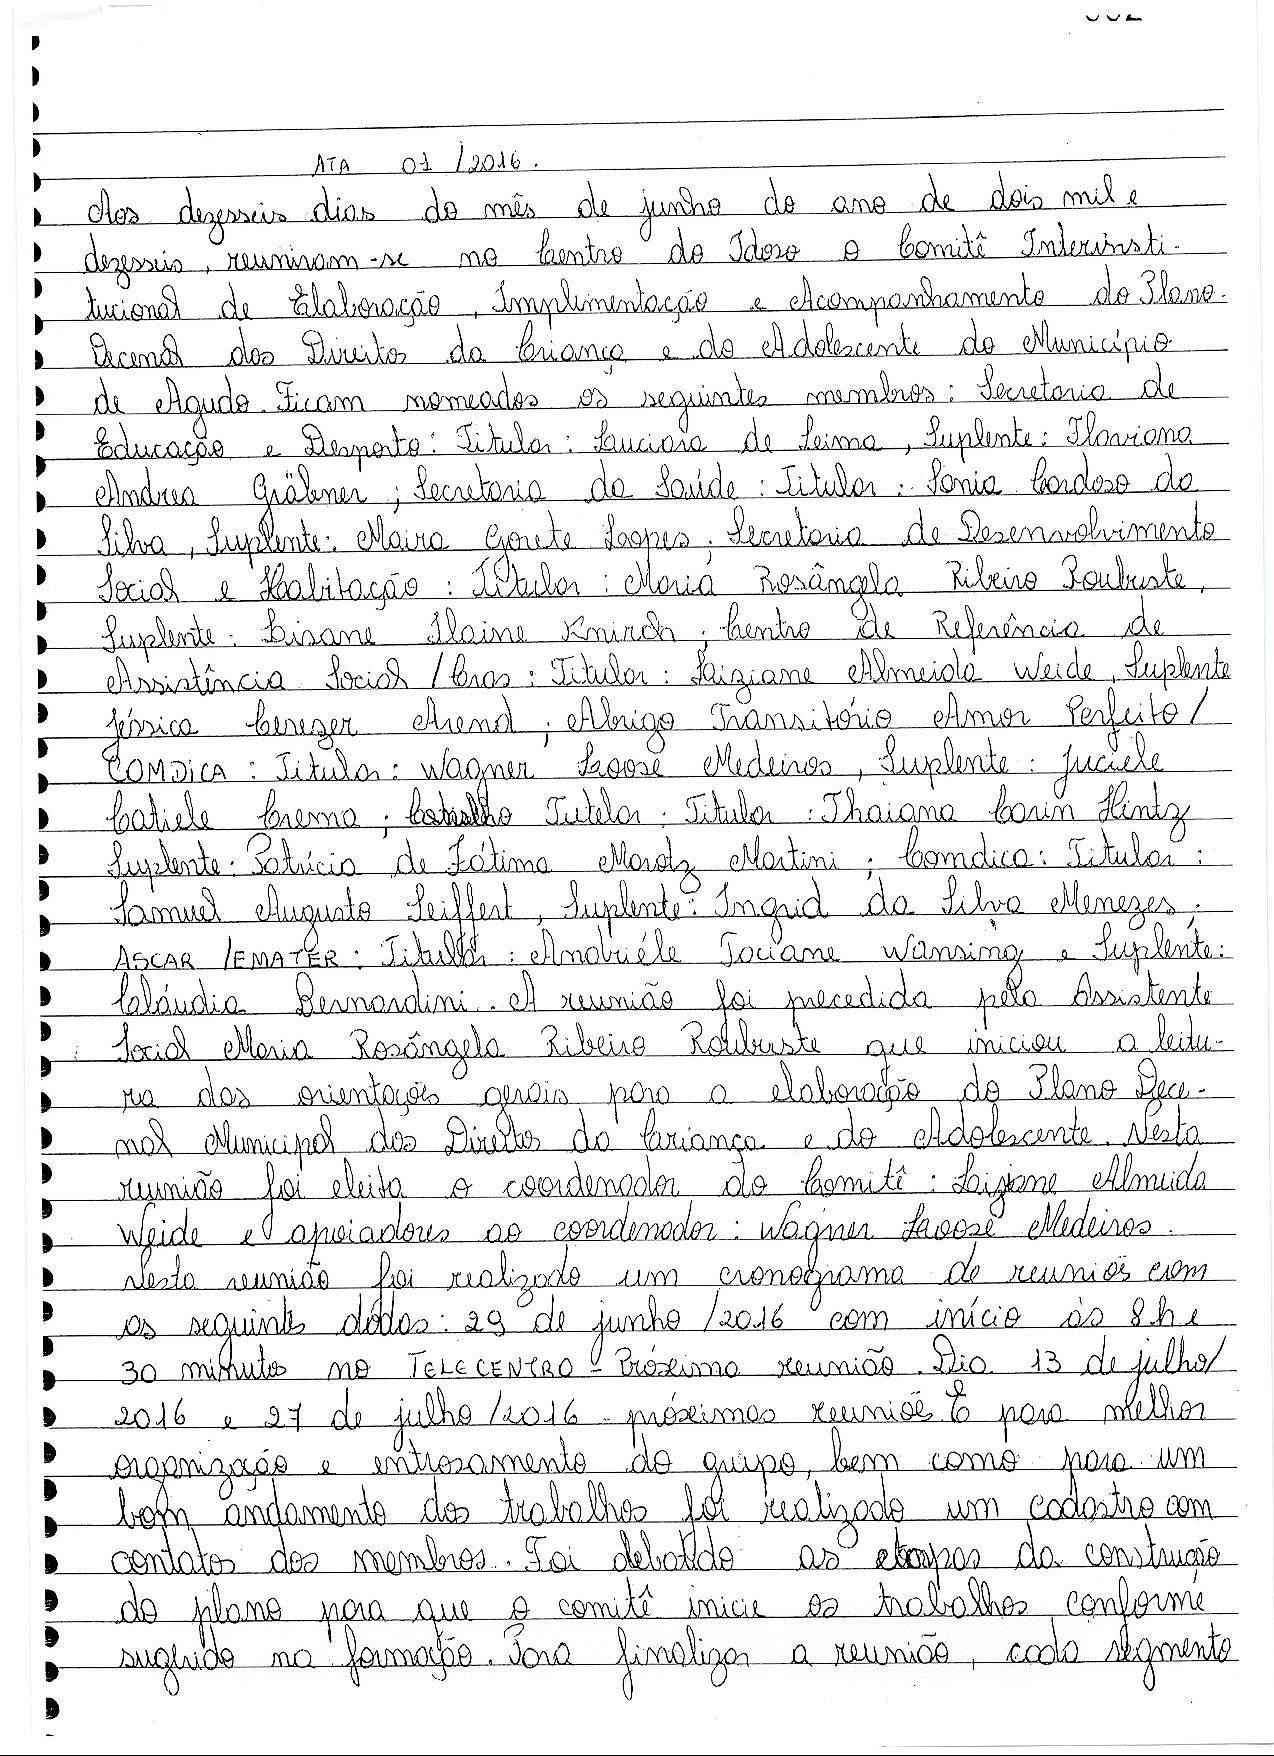 ATA 01/2016.
Aos dezesseis dias do mês de junho do ano de dois mil e
dezesseis, reuniram-se no Centro do Idoso o Comitê Interinsti-
tucional de Elaboração, Implementação e Acompanhamento do Plano
Decenal dos Direitos da Criança e do Adolescente do Município
de Agudo. Ficam nomeados os seguintes membros: Secretaria de
Educação e Desporto: Titular: Luciara de Leima, Suplente: Flaviana
Andrea Gräbner; Secretaria da Saúde: Titular: Sônia Cardoso da
Silva, Suplente: Maira Gorete Lopes; Secretaria de Desenvolvimento
Social e Habitação: Titular: Maria Rosângela Ribeiro Roubuste,
Suplente: Lisane Ilaine Knirsch; Centro de Referência de
Assistência Social /Cras: Titular: Laiziane Almeida Weide, Suplente
Jéssica Cerezer Arend; Abrigo Transitório Amor Perfeito/
COMDICA: Titular: Wagner Loose Medeiros, Suplente: Juciele
Catiele Crema; Conselho Tutelar: Titular: Thaiana Carin Hintz
Suplente: Patrícia de Fátima Marotz Martini; Comdica: Titular:
Samuel Augusto Seiffert, Suplente: Ingrid da Silva Menezes;
ASCAR /EMATER: Titular: Andriéle Jociane Wansing e Suplente:
Cláudia Bernardini. A reunião foi precedida pela Assistente
Social Maria Rosângela Ribeiro Roubuste que iniciou a leitu-
ra das orientações gerais para a elaboração do Plano Dece-
nal Municipal dos Direitos da Criança e do Adolescente. Nesta
reunião foi eleita o coordenador do Comitê: Laiziane Almeida
Weide e apoiadores ao coordenador: Wagner Loose Medeiros.
Nesta reunião foi realizado um cronograma de reuniões com
as seguintes datas: 29 de junho /2016 com início às 8h e
30 minutos no TELECENTRO - Próxima reunião. Dia 13 de julho/
2016 e 27 de julho /2016 - próximas reuniões. E para melhor
organização e entrosamento do grupo, bem como para um
bom andamento dos trabalhos foi realizado um cadastro com
contatos dos membros. Foi debatido as etapas da construção
do plano para que o comitê inicie os trabalhos conforme
sugerido na formação. Para finalizar a reunião, cada segmento